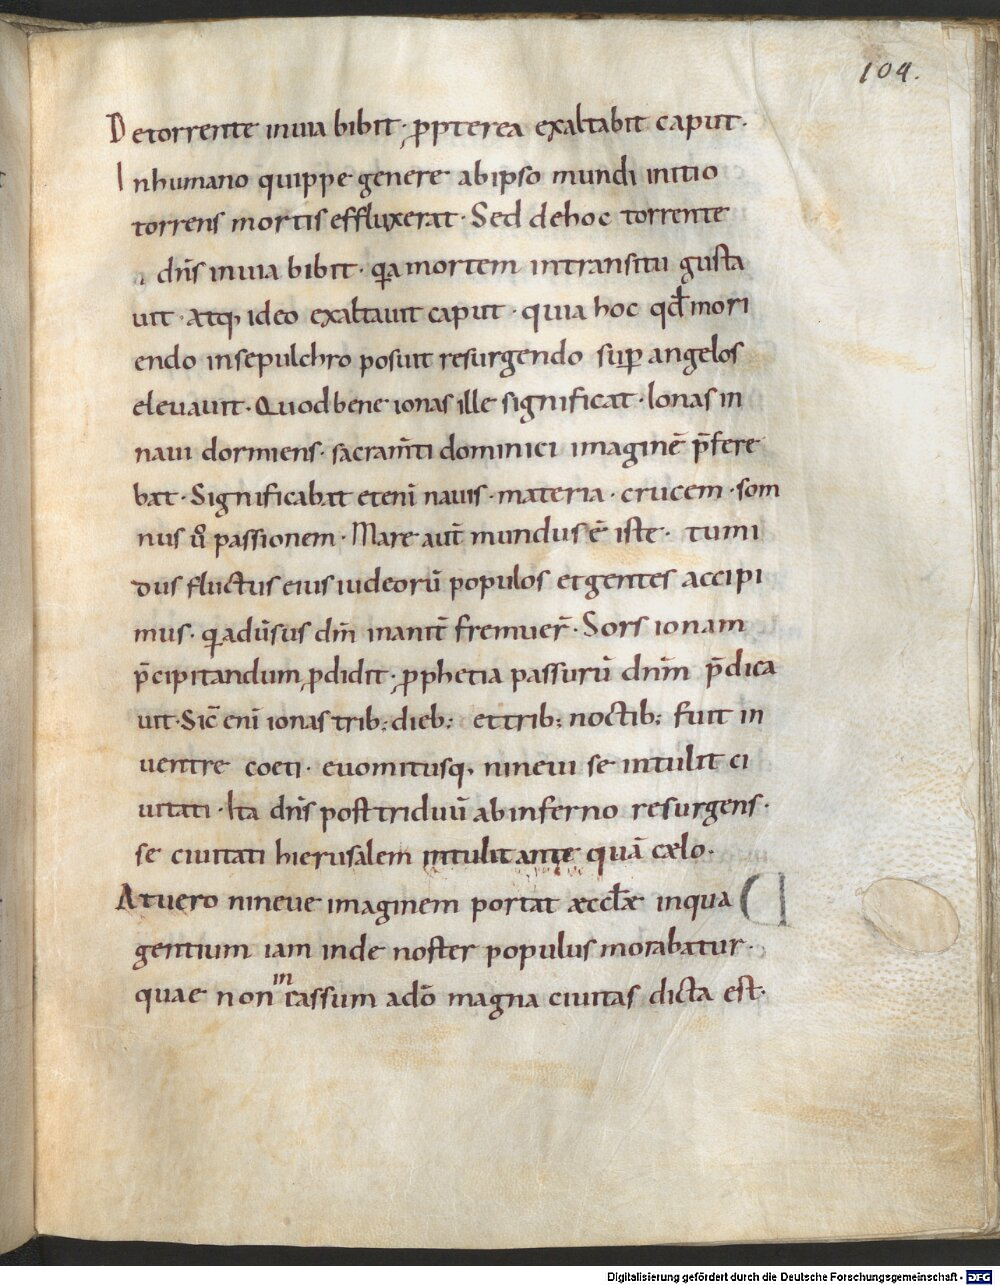 104.
De torrente in uia bibit · ꝓpterea exaltabit caput ·
In humano quippe genere ab ipso mundi initio
torrens mortis effluxerat · Sed de hoc torrente
dn̄s in uia bibit · qa mortem in transitu gusta
uit · atq, ideo exaltauit caput · quia hoc qđ mori
endo in sepulchro posuit resurgendo suꝑ angelos
eleuauit · Quod bene ionas ille significat · Ionas in
naui dormiens · sacram̄ti dominici imaginē p̄fere
bat · Significabat etenī nauis · materia · crucem · som
nus ů passionem · Mare aut̄ mundus ē iste · tumi
dus fluctus eius iudeorū populos et gentes accipi
mus · qui adūsus dn̄m inanit̄ fremuer̄ · Sors ionam
p̄cipitandum ꝓdidit · ꝓphetia passurū dnm̄ p̄dica
uit · Sic̄ enī ionas trib; dieb; et trib; noctib; fuit in
uentre coeti · euomitusq, nineui se intulit ci
uitati · Ita dn̄s post triduū ab inferno resurgens ·
se ciuitati hierusalem intulit ante quā cælo ·
At uero nineue imaginem portat æccłæ in qua
gentium iam inde noster populus morabatur ·
quae non incassum adō magna ciuitas dicta est ·
Digitalisierung gefördert durch die Deutsche Forschungsgemeinschaft - DFG